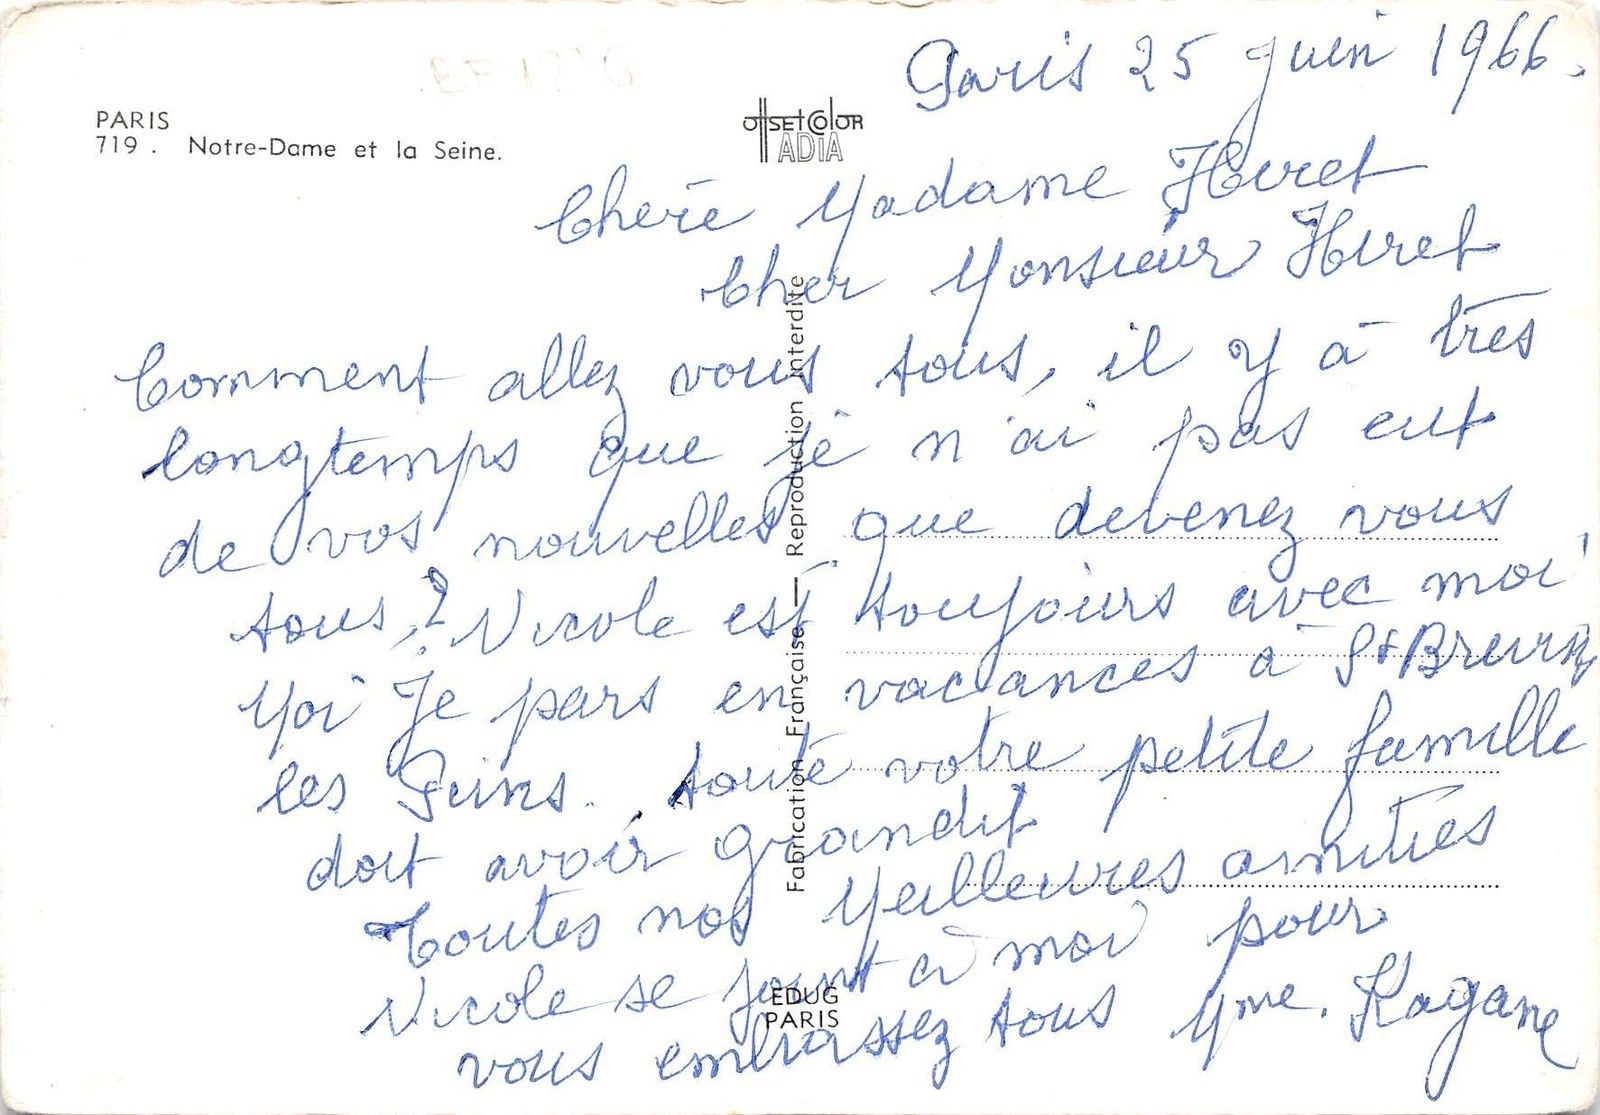 Paris 25 juin 1966.
PARIS
719 . Notre-Dame et la Seine.
OffSEt COlOR
ADIA
Chère Madame Huret
Cher Monsieur Huret
Comment allez vous tous, il y à très
longtemps que je n'ai pas eut
de vos nouvelles que devenez vous
tous,? Nicole est toujours avec moi
Moi Je pars en vacances à St Brevin
les Pins. toute votre petite famille
doit avoir grandit
Toutes nos Meilleures amitiés
Nicole se joint à moi pour
vous embrassez tous Mme. Kagane
Fabrication Française — Reproduction interdite
EDUG
PARIS